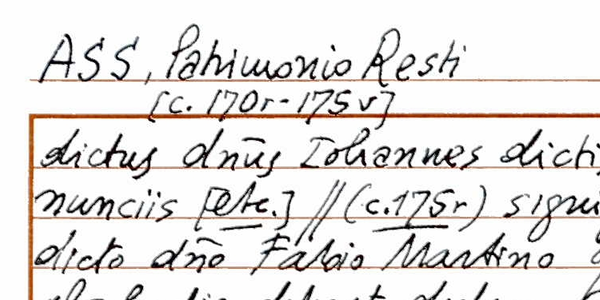 ASS, Patrimonio Resti
[c. 170r-175v]
dictus dn̄us Iohannes dicti
nunciis [etc.] // (c. 175r) signi
dicto dn̄o Fabio Martino